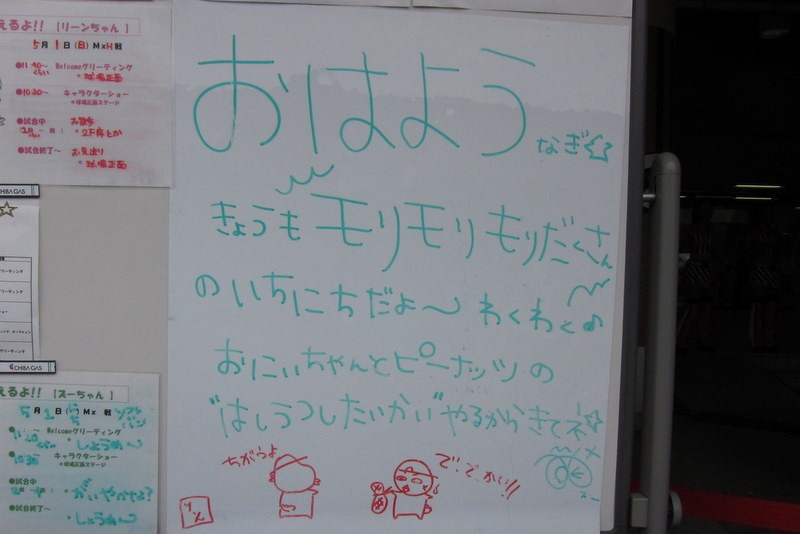 えるよ!! 【リーンちゃん】
5月1日(日)MxH戦
●11:40～ Welcomeグリーティング
・球場正面
●10:20～ キャラクターショー
※球場正面ステージ
●試合中 お散歩
・2F席とか
●試合終了～ お見送り
・球場正面
CHIBA GAS
おはよう
なぎ☆
きょうも モリモリ もりだくさん
のいちにちだよ～ わくわく♪
おにいちゃんとピーナッツの
"はしうつしたいかい"やるからきてネ☆
ちがうよ
で、で、かい!!
CHIBA GAS
えるよ!! 【ズーちゃん】
5月1日 Mx
Welcomeグリーティング
・しょうめ～
キャラクターショー
※球場正面ステージ
●試合中
●試合終了～
・しょうめ～